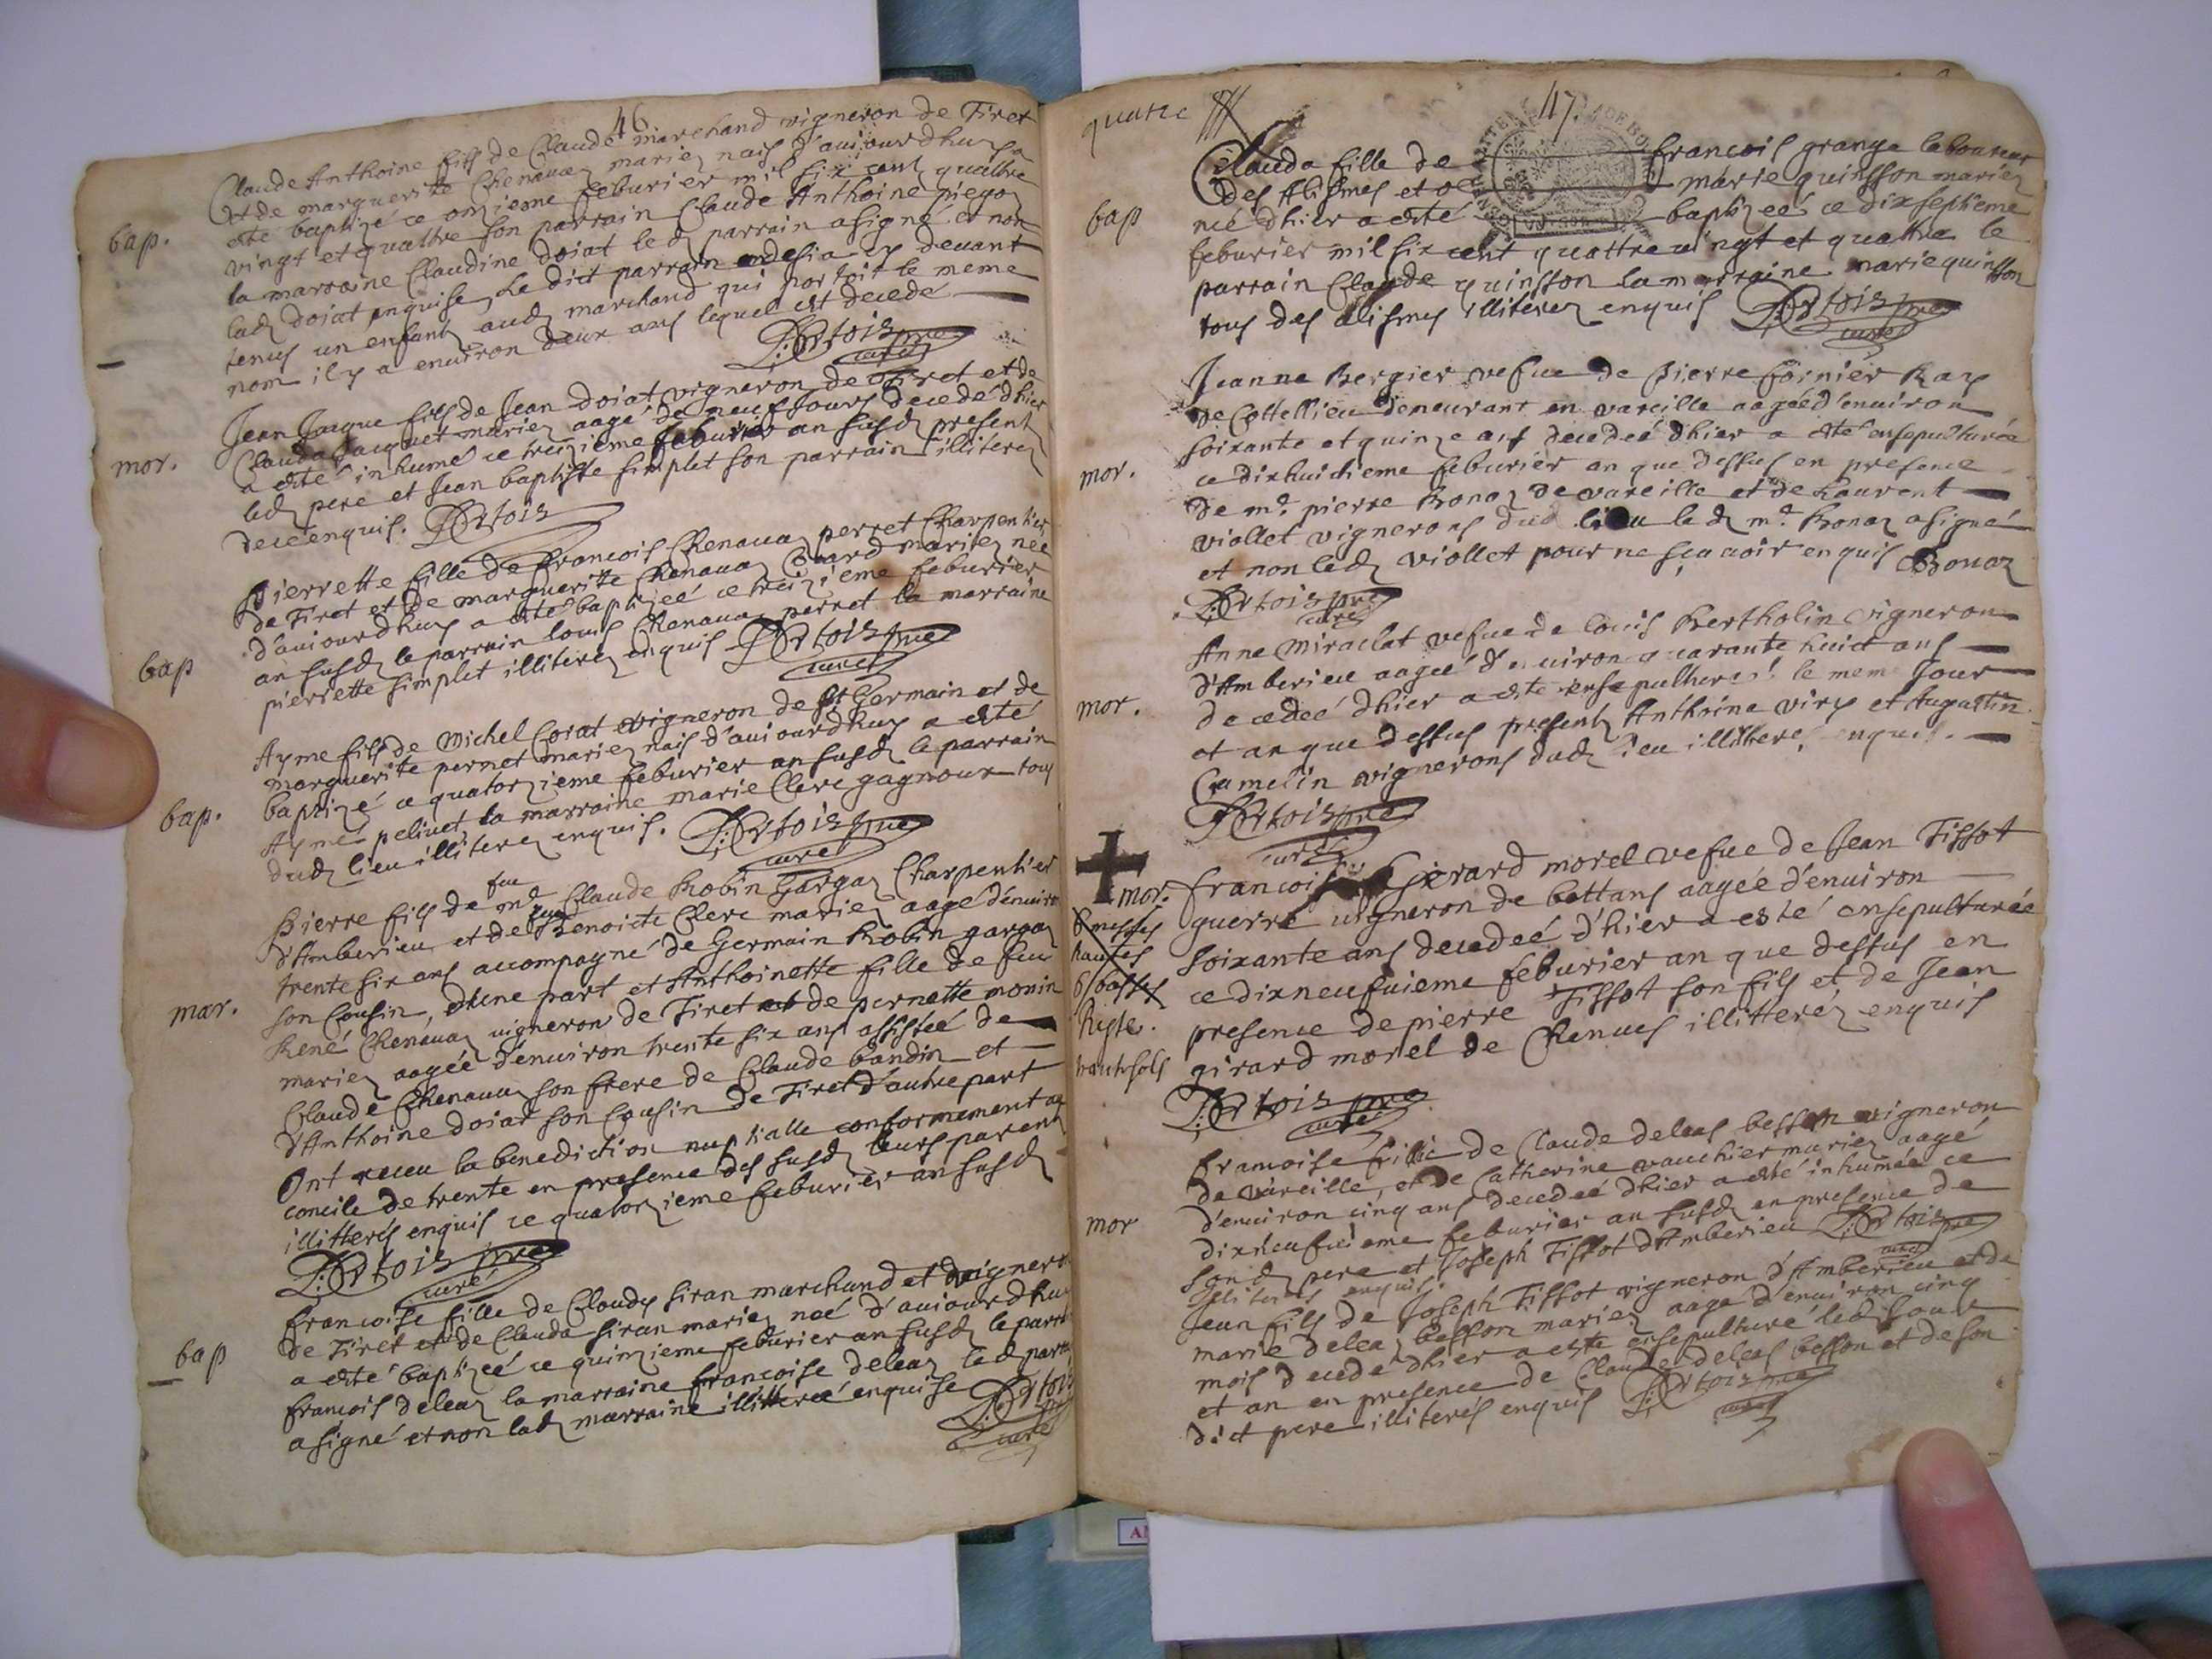 46
Claude Anthoine fils de Claude marchand vigneron de Tiret
et de marguerite Chenavaz mariez nais d'auiourdhuy a
bap.
esté baptizé ce onzieme feburier mil six cent quattre
vingt et quattre son parrain Claude Anthoine
la marraine Claudine doiat led parrain a signé et non
lad doiat enquise, le dict parrain ci devant
tenus un enfant aud marchand qui portoit le meme
nom il y a environ deux ans lequel est decedé
D: Ortois pre
curé
Jean Jacque fils de Jean doiat vigneron de Tiret et de
Clauda Jacquet mariez aagé de neuf Jours decedé dhier
mor.
a esté inhumé ce treizieme feburier an susd present
led pere et Jean baptiste simplet son parrain illiterez
de ce enquis. D: Ortois
Pierrette fille de francois Chenavaz perret Charpentier
de Tiret et de marguerite Chenavaz mariez neé
d'auiourdhuy a esté baptizeé ce treizieme feburier
bap
an susd le parrain louis Chenavaz perret la marraine
pierrette simplet illiterez enquis D: Ortois pre
curé
Ayme fils de Michel Coiat vigneron de St Germain et de
marguerite pernet mariez nais d'auiourdhuy a esté
bap.
baptizé ce quatorzieme feburier an susd le parrain
Aymé pelivet, la marraine marie Clerc gagnoux tous
dud lieu illiterez enquis. D: Ortois pre
curé
feu
Pierre fils de md Claude Robin Gargaz Charpentier
d'Amberieu et de Benoicte Clerc mariez aagé d'environ
trente six ans accompagné de Germain Robin gargaz
mar.
son Cousin, d'une part et Anthoinette fille de feu
René Chenavaz vigneron de Tiret et de pernette monin
mariez aagée d'environ trente six ans assisteé de
Claude Chenavaz son frere de Claude bandin et
d'Anthoine doiat son Cousin de Tiret d'autre part
Ont receu la benediction nuptialle conformement au
concile de trente en presence des susd leurs parents
illitterés enquis ce quatorzieme feburier an susd
D: Ortois pre
curé
francoise fille de Claudy siran marchand et vigneron
de Tiret et de Clauda siran mariez neé d'auiourdhuy
bap
a esté baptizeé ce quinzieme feburier an susd le parrain
francois deleaz la marraine francoise deleaz led parrain
a signé et non lad marraine illitereé enquise D: Ortois
curé
quatre
47.
Clauda fille de francois grange laboureur
des Alismes et de marie quinsson mariez
bap
neé dhier a esté baptizeé ce dix septieme
feburier mil six cent quattre vingt et quattre le
parrain Claude quinsson la marraine marie quinsson
tous des alismes illiterez enquis D: Ortois pre
curé
Jeanne Bergier vefue de Pierre fornier Ray
de Cottellieu demeurant en vareille aageé d'environ
soixante et quinze ans decedeé dhier a esté ensepulturée
mor.
ce dixhuictieme feburier an que dessus en presence
de md. pierre Bonaz de vareille et de Laurent
viollet vignerons dud lieu led md. Bonaz a signé
et non led viollet pour ne sçavoir enquis Bonaz
D: Ortois pre
curé
Anne Miraclat vefue de louis Bertholin vigneron
d'Amberieu aageé d'environ quarante huict ans
mor.
decedeé dhier a esté ensepulturé le meme Jour
et an que dessus presents Anthoine viry et Augustin
Camelin vignerons dud lieu illitterés enquis.
D: Ortois pre
curé
mor.
francoise Gerard morel vefue de Jean Tissot
6 messes
guerre vigneron de bettans aagée d'environ
hautes
soixante ans decedeé d'hier a esté ensepulturée
6 basses
ce dixneufuieme feburier an que dessus en
Reste.
presence de pierre Tissot son fils et de Jean
girard morel de Chenues illitteréz enquis
D: Ortois pre
curé
francoise fille de Claude deleas besson vigneron
de vareille, et de Catherine vauchier mariez aagé
d'environ cinq ans decedeé dhier a esté inhumée ce
mor
dixneufuieme feburier an susd en presence de
sond pere et Joseph Tissot d'Amberieu D: Ortois pre
illiteres enquis. curé
Jean fils de Joseph Tissot vigneron d'Amberieu et de
marie deleaz besson mariez aagé d'environ cinq
mois decedé dhier a esté ensepulturé led Jour
et an en presence de Claude deleas besson et de son
dict pere illiterés enquis D: Ortois pre
curé